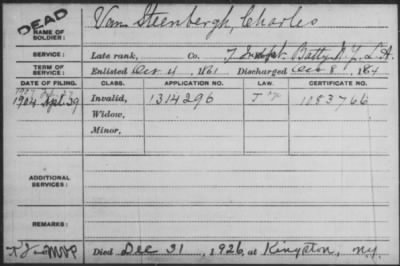 DEAD
NAME OF SOLDIER: Van Steenbergh, Charles
SERVICE: Late rank, Co. 7 Batty N.Y. L.A.
TERM OF SERVICE: Enlisted Oct 4, 1861 Discharged Oct 8, 1864
DATE OF FILING. CLASS. APPLICATION NO. LAW. CERTIFICATE NO.
1904 Apl. 29 Invalid, 1314296 1083766
Widow,
Minor,
ADDITIONAL SERVICES:
REMARKS:
Died Dec 31, 1926, at Kingston, N.Y.